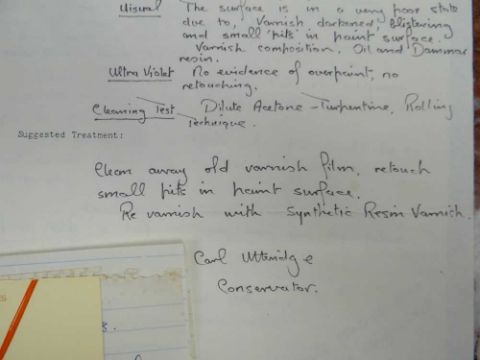 Visual The surface is in a very poor state
due to, Varnish darkened, blistering
and small 'pits' in paint surface.
Varnish composition. Oil and Dammar
resin.
Ultra Violet No evidence of overpaint, no
retouching.
Cleaning Test Dilute Acetone - Turpentine, Rolling
technique.
Suggested Treatment:
Clean away old varnish film, retouch
small pits in paint surface.
Re varnish with Synthetic Resin Varnish.
Carl
Conservator.